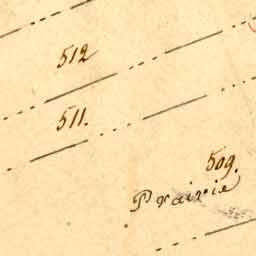 512
511.
509.
Prairie